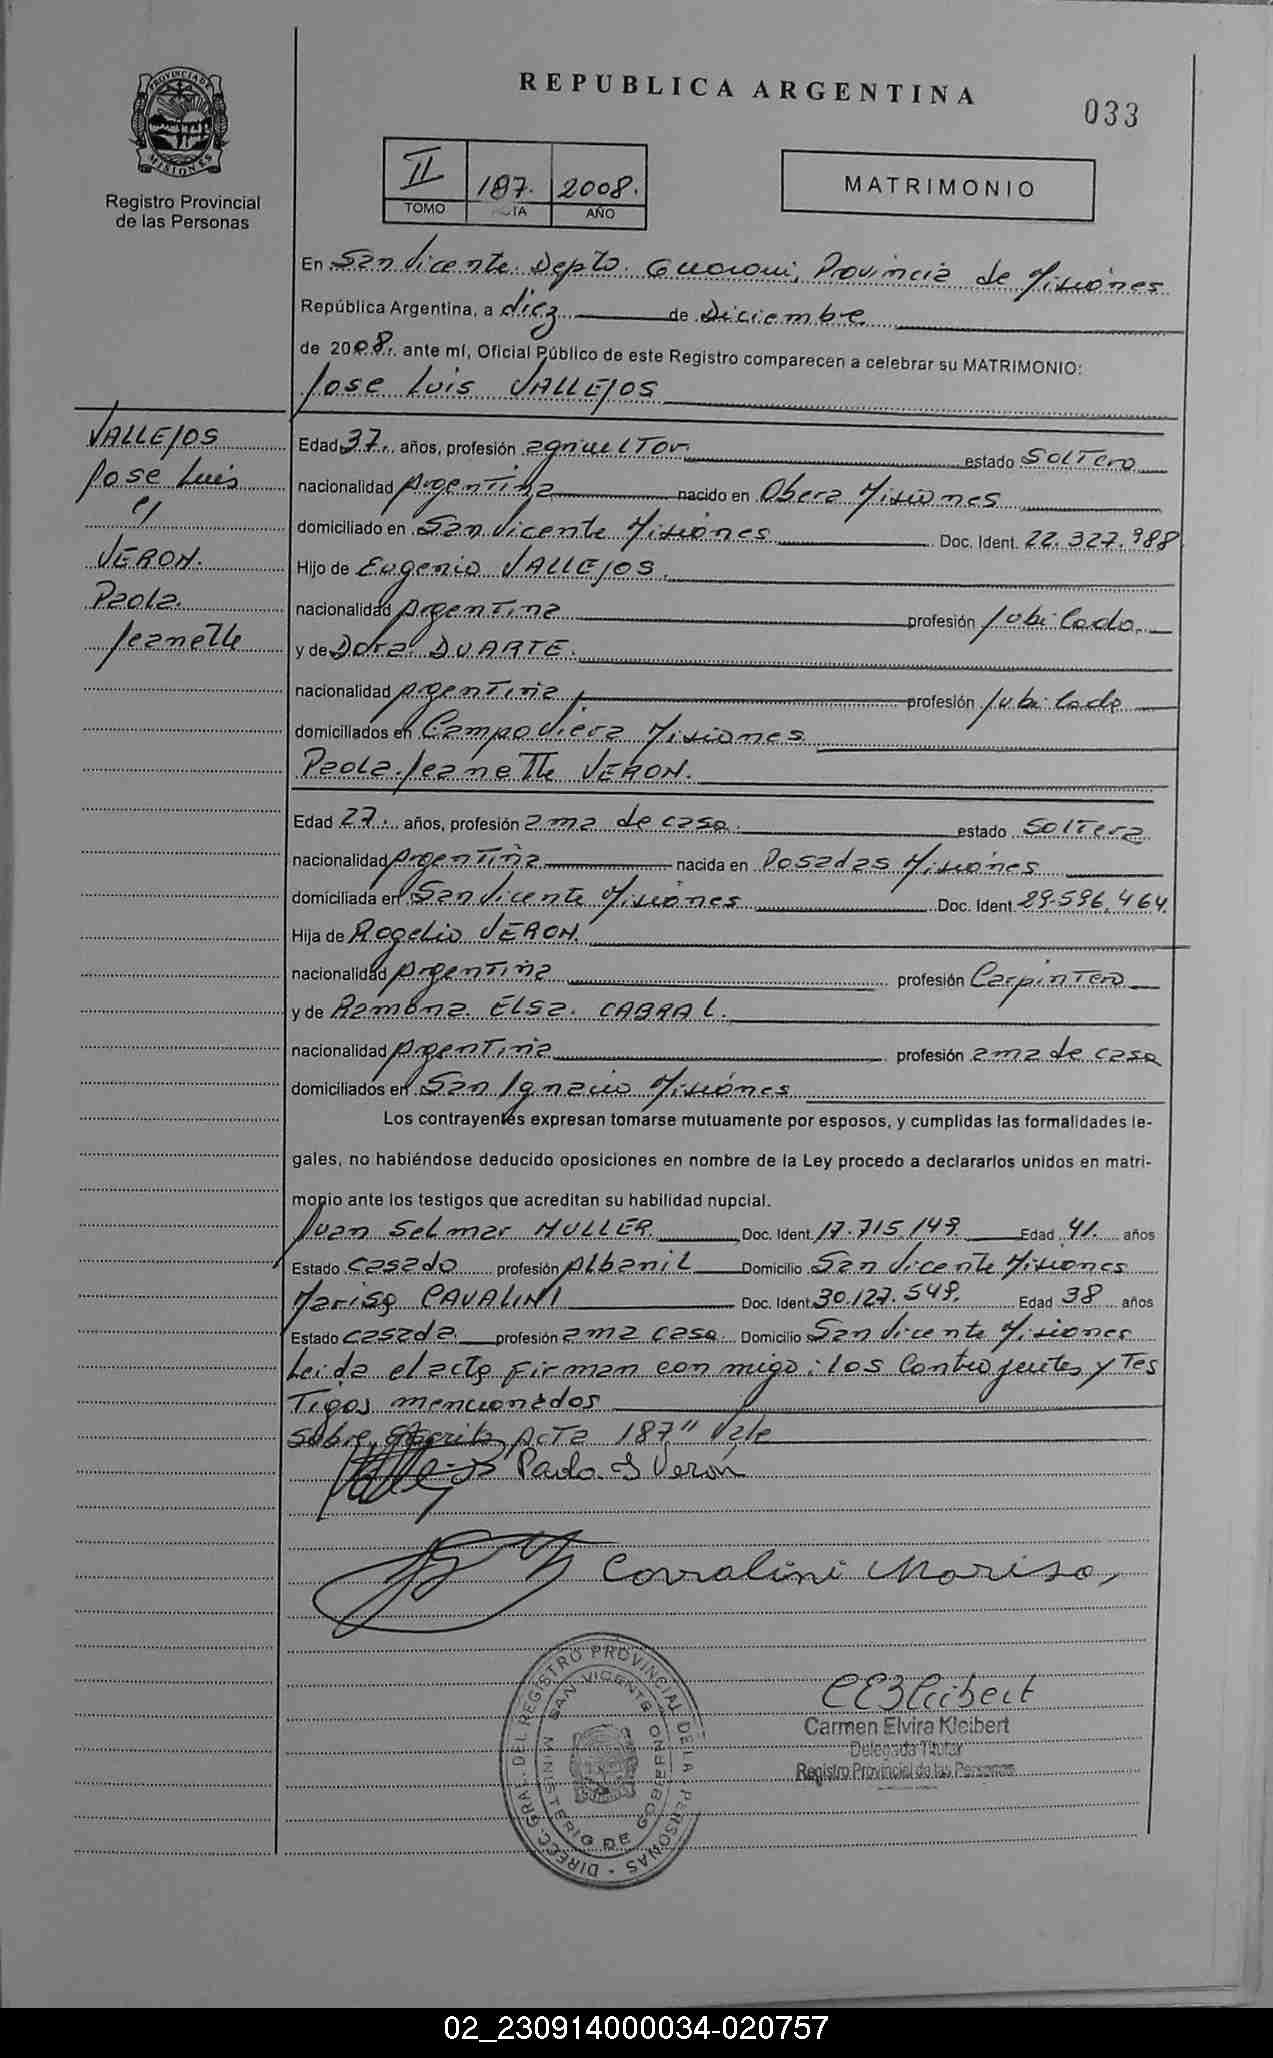 REPUBLICA ARGENTINA
033
PROVINCIA DE MISIONES
Registro Provincial
de las Personas
II 187. 2008.
TOMO ACTA AÑO
MATRIMONIO
En San Vicente Depto. Guarani, Provincia de Misiones
República Argentina, a diez de Diciembre
de 2008, ante mí, Oficial Público de este Registro comparecen a celebrar su MATRIMONIO:
Jose Luis VALLEJOS
VALLEJOS
Jose Luis
c/
VERON.
Paola
Jeanette
Edad 37. años, profesión agricultor. estado Soltero
nacionalidad Argentina nacido en Obera Misiones
domiciliado en San Vicente Misiones Doc. Ident. 22.327.988
Hijo de Eugenio VALLEJOS.
nacionalidad Argentina profesión Jubilado.
y de Dora DUARTE.
nacionalidad Argentina profesión Jubilada
domiciliados en Campo Viera Misiones
Paola Jeanette VERON.
Edad 27. años, profesión ama de casa. estado Soltera
nacionalidad Argentina nacida en Posadas Misiones
domiciliada en San Vicente Misiones Doc. Ident. 29.596.464
Hija de Rogelio VERON.
nacionalidad Argentina profesión Carpintero
y de Ramona Elsa CABRAL.
nacionalidad Argentina profesión ama de casa
domiciliados en San Ignacio Misiones
Los contrayentes expresan tomarse mutuamente por esposos, y cumplidas las formalidades le-
gales, no habiéndose deducido oposiciones en nombre de la Ley procedo a declararlos unidos en matri-
monio ante los testigos que acreditan su habilidad nupcial.
Juan Selmar MULLER. Doc. Ident. 17.715.149. Edad 41. años
Estado Casado profesión Albanil Domicilio San Vicente Misiones
Marisa CAVALINI Doc. Ident. 30.127.549. Edad 38 años
Estado casada profesión ama casa. Domicilio San Vicente Misiones
Leida el acta firman con migo: los Controjentes y Tes
Tigos mencionados
Sobre Escrito Acta 187" Vale
Paola J Verón
Corralini Marisa,
DIREC. GRAL. DEL REGISTRO PROVINCIAL DE LA PERSONAS
SAN VICENTE MINISTERIO DE GOBIERNO
CEKleibert
Carmen Elvira Kleibert
Delegada Titular
Registro Provincial de las Personas
02_230914000034-020757